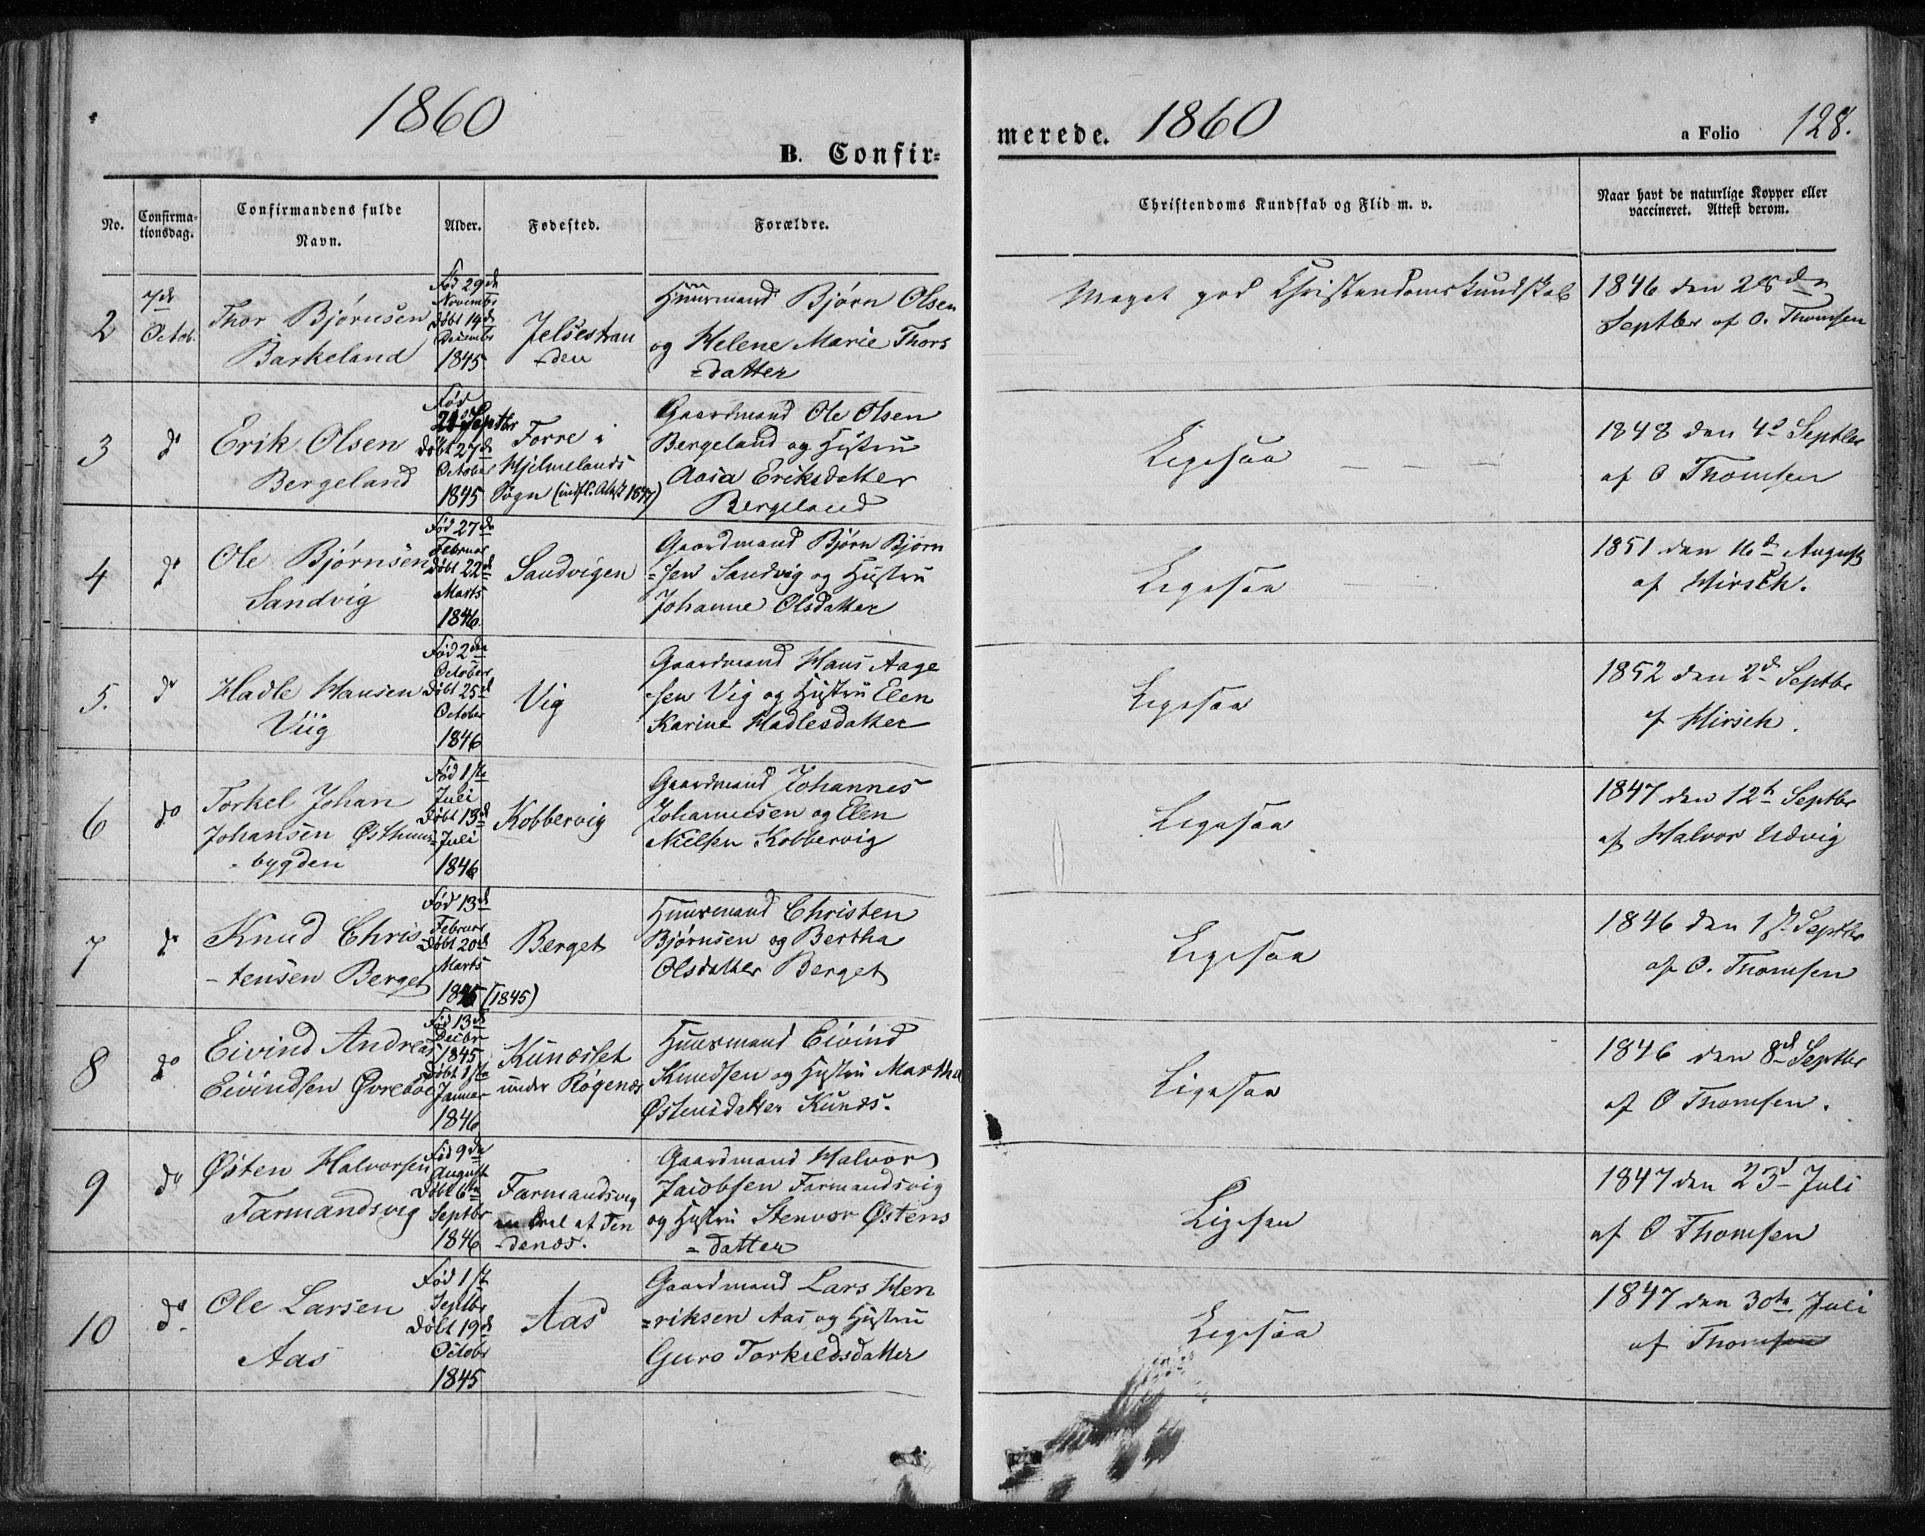 1860
B. Confir=
No.
Confirma-
tionsdag.
Confirmandens fulde
Navn.
Alder.
Fødested.
Forældre.
2
7de
Octob.
Thor Bjørnsen
Barkeland
Fød 29de
Novembr
Døbt 14de
Decembr
1845
Jelsestran
-den
Huusmand Bjørn Olsen
og Helene Marie Thors
=datter
3
do
Erik Olsen
Bergeland
Fød
Septbr
Døbt 27de
October
1845
Forre i
Hjelmelands
Sogn
Gaardmand Ole Olsen
Bergeland og Hustru
Aasa Eriksdatter
Bergeland
4
do
Ole Bjørnsen
Sandvig
Fød 27de
Februar
Døbt 22de
Marts
1846
Sandvigen
Gaardmand Bjørn Bjørn
=sen Sandvig og Hustru
Johanne Olsdatter
5.
do
Hadle Hansen
Viig
Fød 2den
October
Døbt 25de
October
1846
Vig
Gaardmand Hans Aage
-sen Vig og Hustru Elen
Karine Hadlesdatter
6
do
Torkel Johan
Johansen Østhuus
-bygden
Fød 1ste
Juli
Døbt 13de
Juli
1846
Kobbervig
Gaardmand Johannes
Johannesen og Elen
Nielsen Kobbervig
7
do
Knud Chris
-tensen Berget
Fød 13de
Februar
Døbt 20de
Marts
(1845)
Berget
Huusmand Christen
Bjørnsen og Bertha
Olsdatter Berget
8
do
Eivind Andreas
Eivindsen Øvrebøe
Fød 13de
Decbr
1845
Døbt 1ste
Januar
1846
Kunesset
under Røgenæs
Huusmand Eivind
Knudsen og Hustru Martha
Østensdatter Kunes.
9
do
Østen Halvorsen
Farmandsvig
Fød 9de
August
Døbt 6te
Septbr
1846
Farmandsvig
en Deel af Ten
-denæs.
Gaardmand Halvor
Jacobsen Farmandsvig
og Hustru Stenvor Østens
=datter
10
do
Ole Larsen
Aas
Fød 1ste
Septbr
Døbt 19de
Octobr
1845
Aas
Gaardmand Lars Hen
=riksen Aas og Hustru
Guro Torkildsdatter
merede. 1860
a Folio 128.
Christendoms Kundskab og Flid m. v.
Naar havt de naturlige Kopper eller
vaccineret. Attest derom.
Meget god Christendomskundskab
1846 den 28den
Septbr af O. Thomsen
Ligesaa — — —
1848 den 4de Septbr
af O Thomsen
Ligesaa
1851 den 16de August
af Hirsch.
Ligesaa
1852 den 2de Septbr
af Hirsch.
Ligesaa
1847 den 12te Septbr
af Halvor Udvig
Ligesaa
1846 den 1ste Septbr
af O. Thomsen
Ligesaa
1846 den 8de Septbr
af O Thomsen.
Ligesaa
1847 den 23de Juli
af O Thomsen
Ligesaa
1847 den 30te Juli
af Thomsen